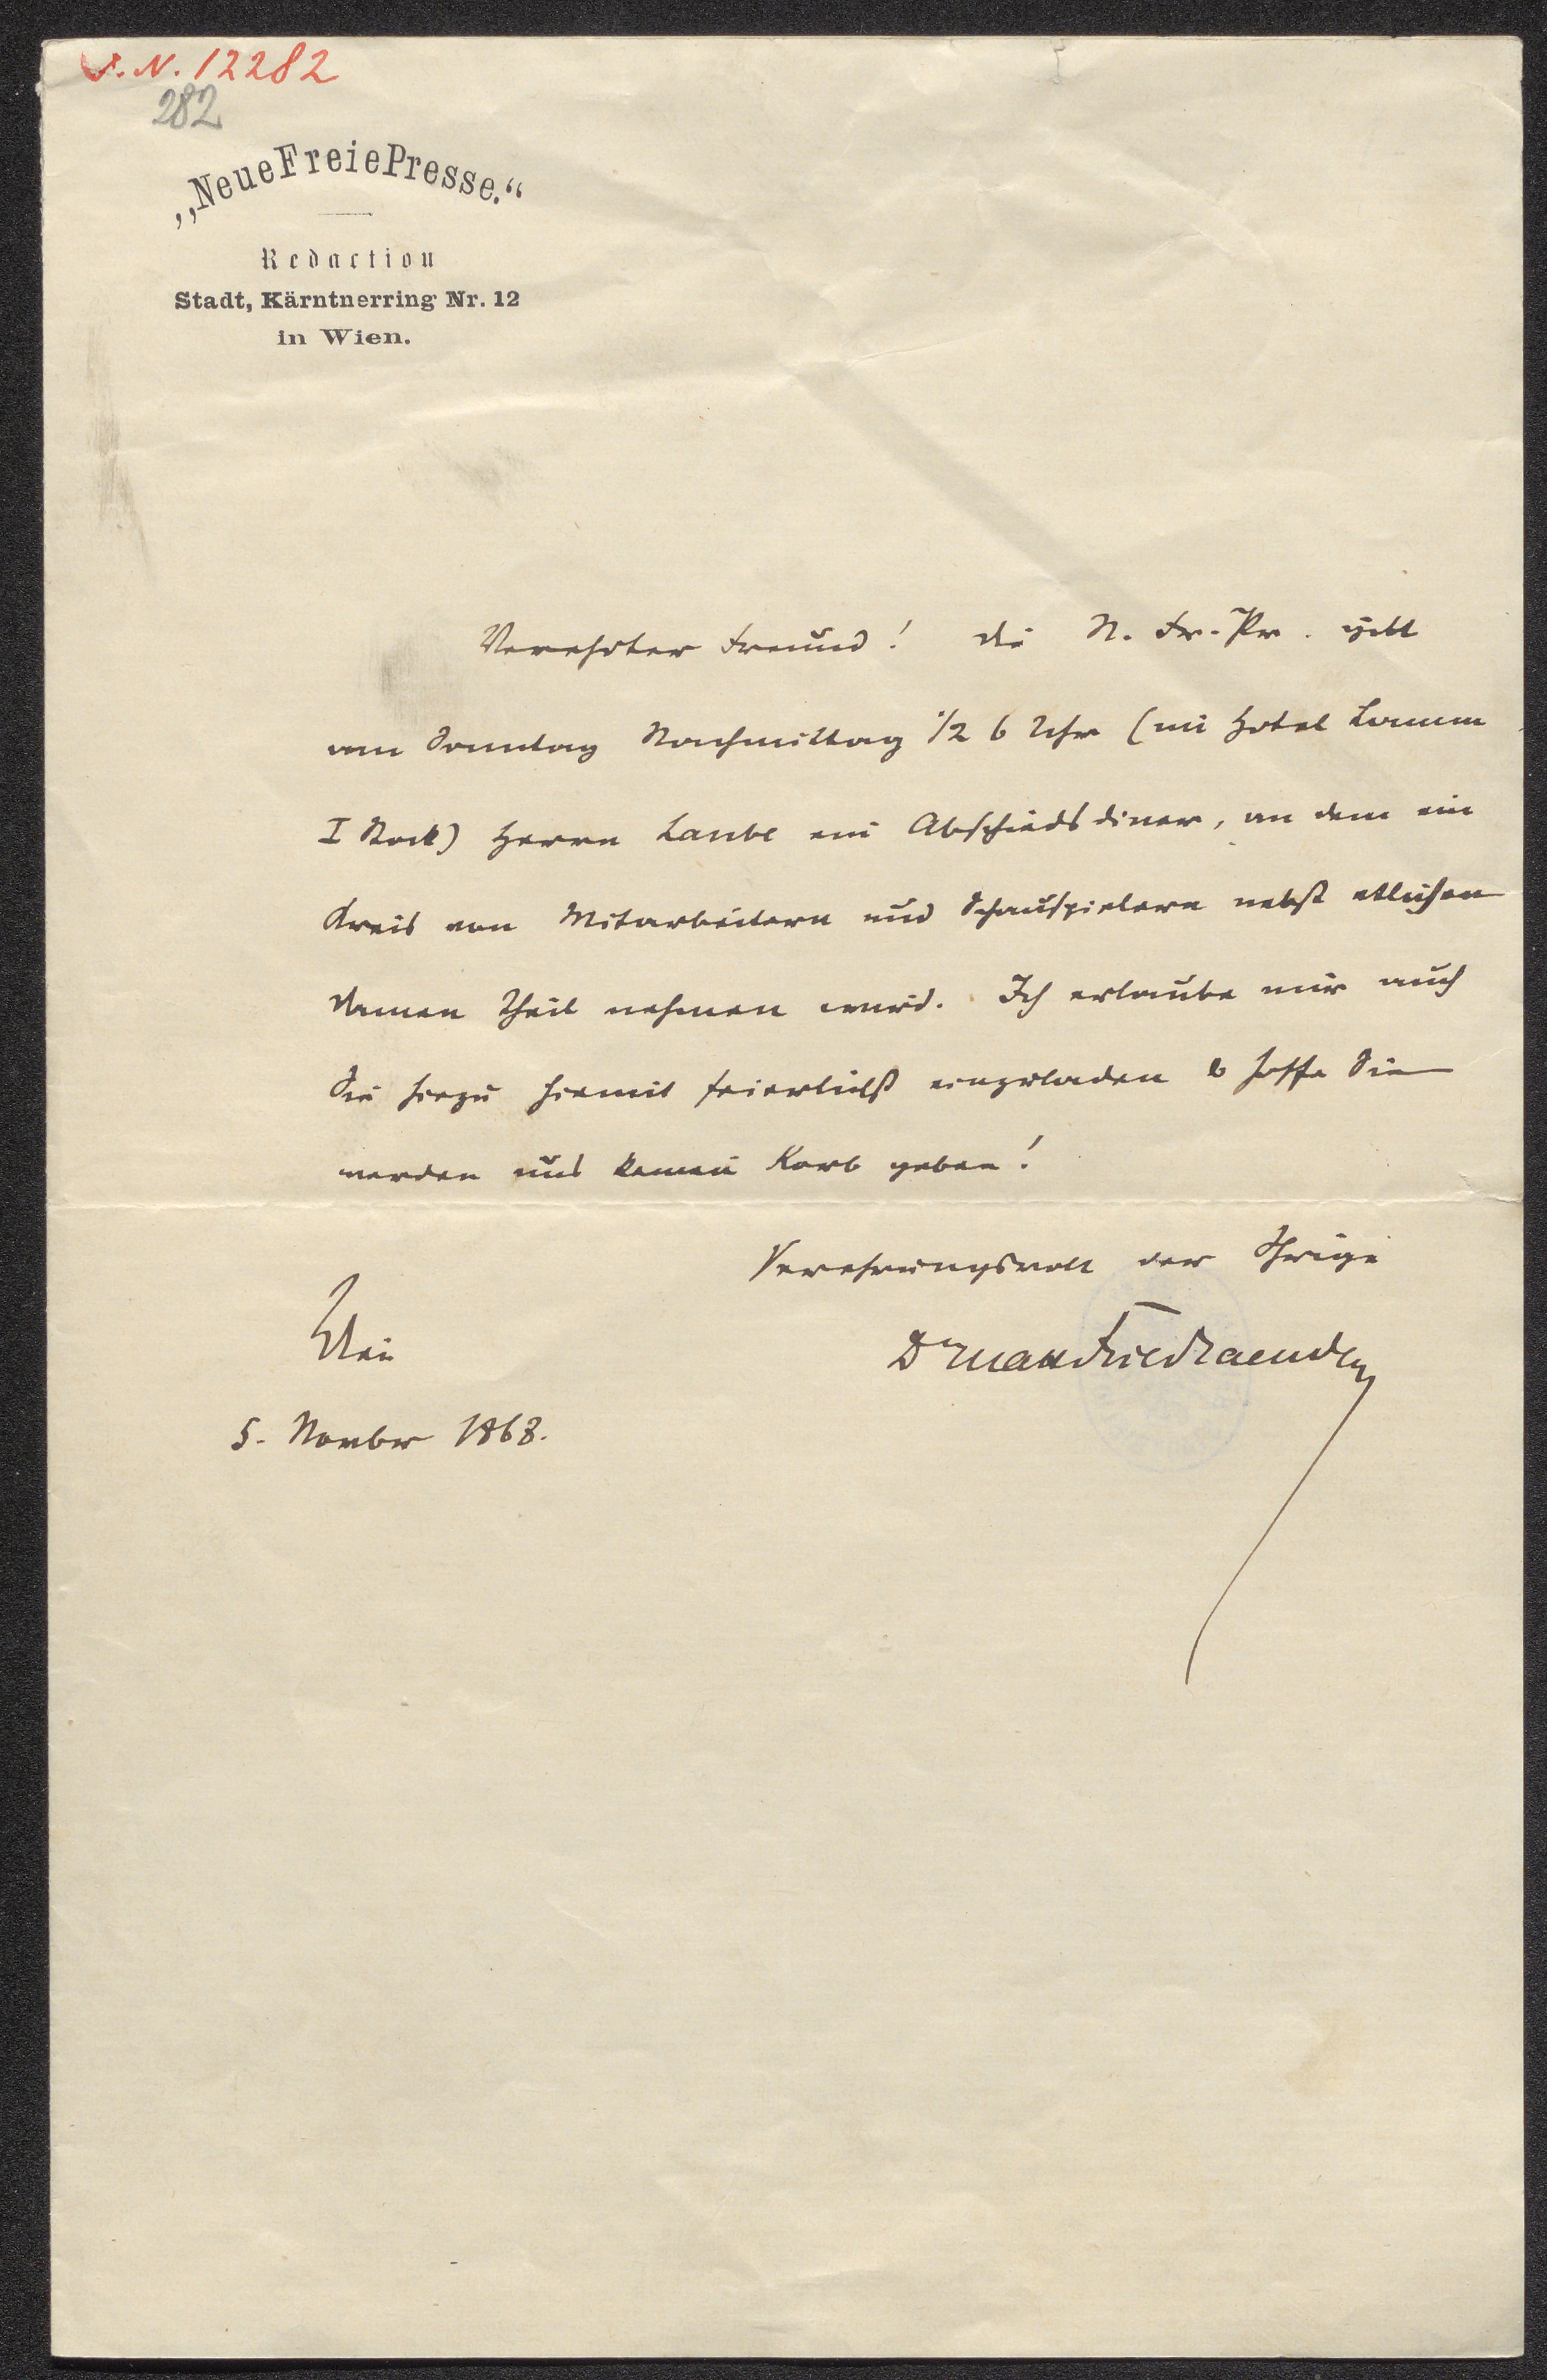 I. N. 12282
282
„Neue Freie Presse.“
Redaction
Stadt, Kärntnerring Nr. 12
in Wien.
Verehrter Freund! Die N. Fr. Pr. gibt
am Sonntag Nachmittag ½ 6 Uhr (im Hotel Lamm
I Stock) Herrn Laube ein Abschiedsdiner, an dem ein
Kreis von Mitarbeitern und Schauspielern nebst etlichen
Damen Theil nehmen wird. Ich erlaube mir auch
Sie hiezu hiemit feierlichst einzuladen & hoffe Sie
werden uns keinen Korb geben!
Verehrungsvoll der Ihrige
Dr Max Friedlaender
Wien
5. November 1868.